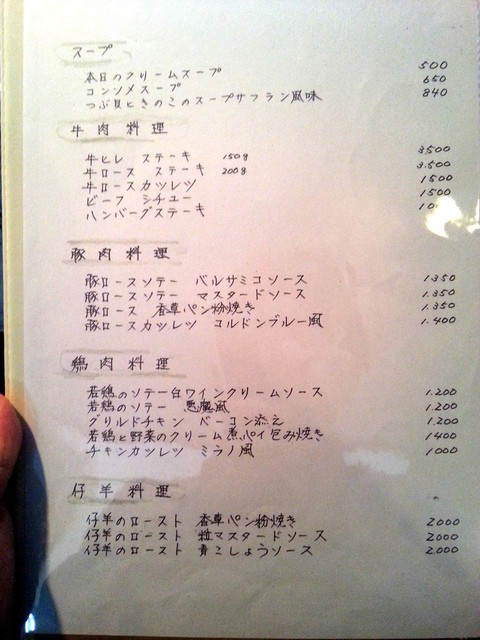 スープ
本日のクリームスープ 500
コンソメスープ 650
つぶ貝ときのこのスープサフラン風味 840
牛肉料理
牛ヒレ ステーキ 150g 3500
牛ロース ステーキ 200g 3.500
牛ロースカッレツ 1500
ビーフ シチュー 1500
ハンバーグステーキ
豚肉料理
豚ロースソテー バルサミコソース 1.350
豚ロースソテー マスタードソース 1.350
豚ロース 香草パン粉焼き 1.350
豚ロースカッレツ コルドンブルー風 1.400
鶏肉料理
若鶏のソテー白ワインクリームソース 1.200
若鶏のソテー 悪魔風 1.200
グリルドチキン ベーコン添え 1.200
若鶏と野菜のクリーム煮パイ包み焼き 1400
チキンカッレツ ミラノ風 1000
仔羊料理
仔羊のロースト 香草パン粉焼き 2000
仔羊のロースト 粒マスタードソース 2000
仔羊のロースト 青こしょうソース 2.000